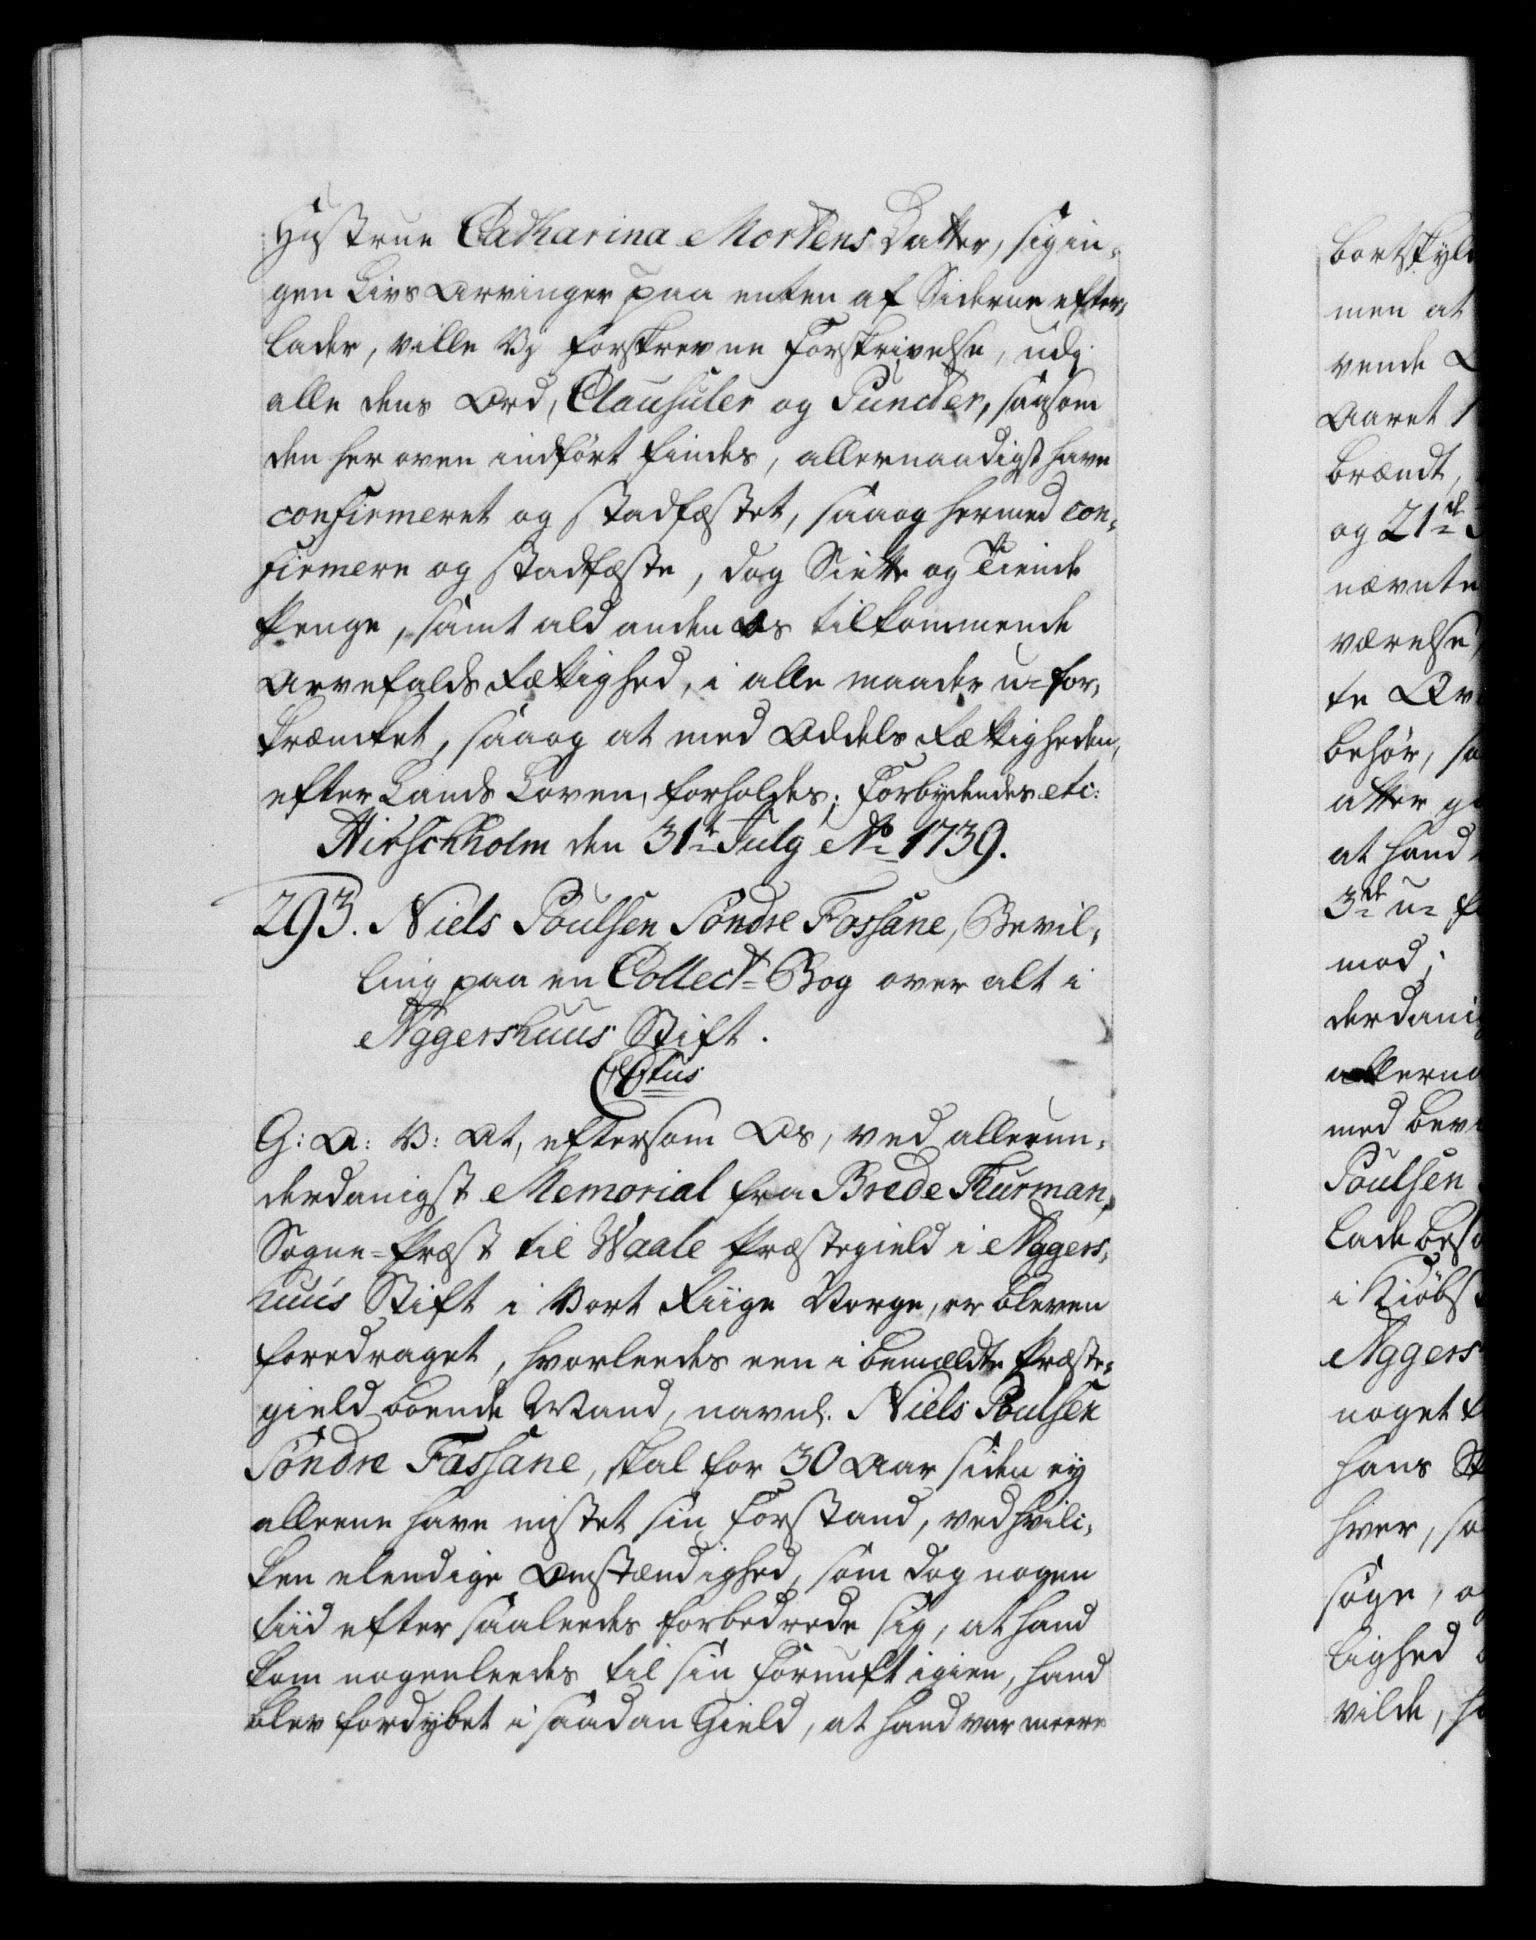 Hustrue Catharina Mortens Datter, sig in-
gen Livs Arvinger paa enten af Siderne efter-
lader, ville Vj forskrevne Forskrivelse, udj
alle dens Ord, Clausuler og Puncter, saasom
den her oven indført findes, allernaadigst have
confirmeret og stadfæstet, saa og hermed con-
firmere og stadfæste, dog Siette og Tiende
Penge, samt ald anden Os tilkommende
Arvefalds Rettighed, i alle maader u-for-
krænket, saa og at med Oddels Rettigheden,
efter Lands Loven, forholdes; Forbydendes etc:
Hirschholm den 31te July Ao 1739.
293. Niels Poulsen Søndre Fossane, Bevil-
ling paa en Collect-Bog over alt i
Aggershuus Stift.
C 6tus
G: A: V: At, eftersom Os, ved allerun-
derdanigst Memorial fra Brede Thurman,
Sogne-Præst til Waale Præstegield i Aggers-
huus Stift i Vort Riige Norge, er bleven
foredraget, hvorleedes een i bemældte Præste-
gield boende Mand, navnl. Niels Poulsen
Søndre Fassane, skal for 30 Aar siden ey
alleene have mistet sin Forstand, ved hvil-
ken elendige Omstændighed, som dog nogen
tiid efter saaleedes forbedrede sig, at hand
kom nogenleedes til sin Fornuft igien, hand
blev fordybet i saadan Gield, at hand var meere
men at
vende
Aaret 1
brændt,
og 21de
nævnte
værelse,
te
behør, so
atter
at hand
3de u-
mod;
allerna
med bevi
Poulsen
Lade
i Kiøbs
Aggers
noget
hans St
hver, so
søge,
lighed
vilde,